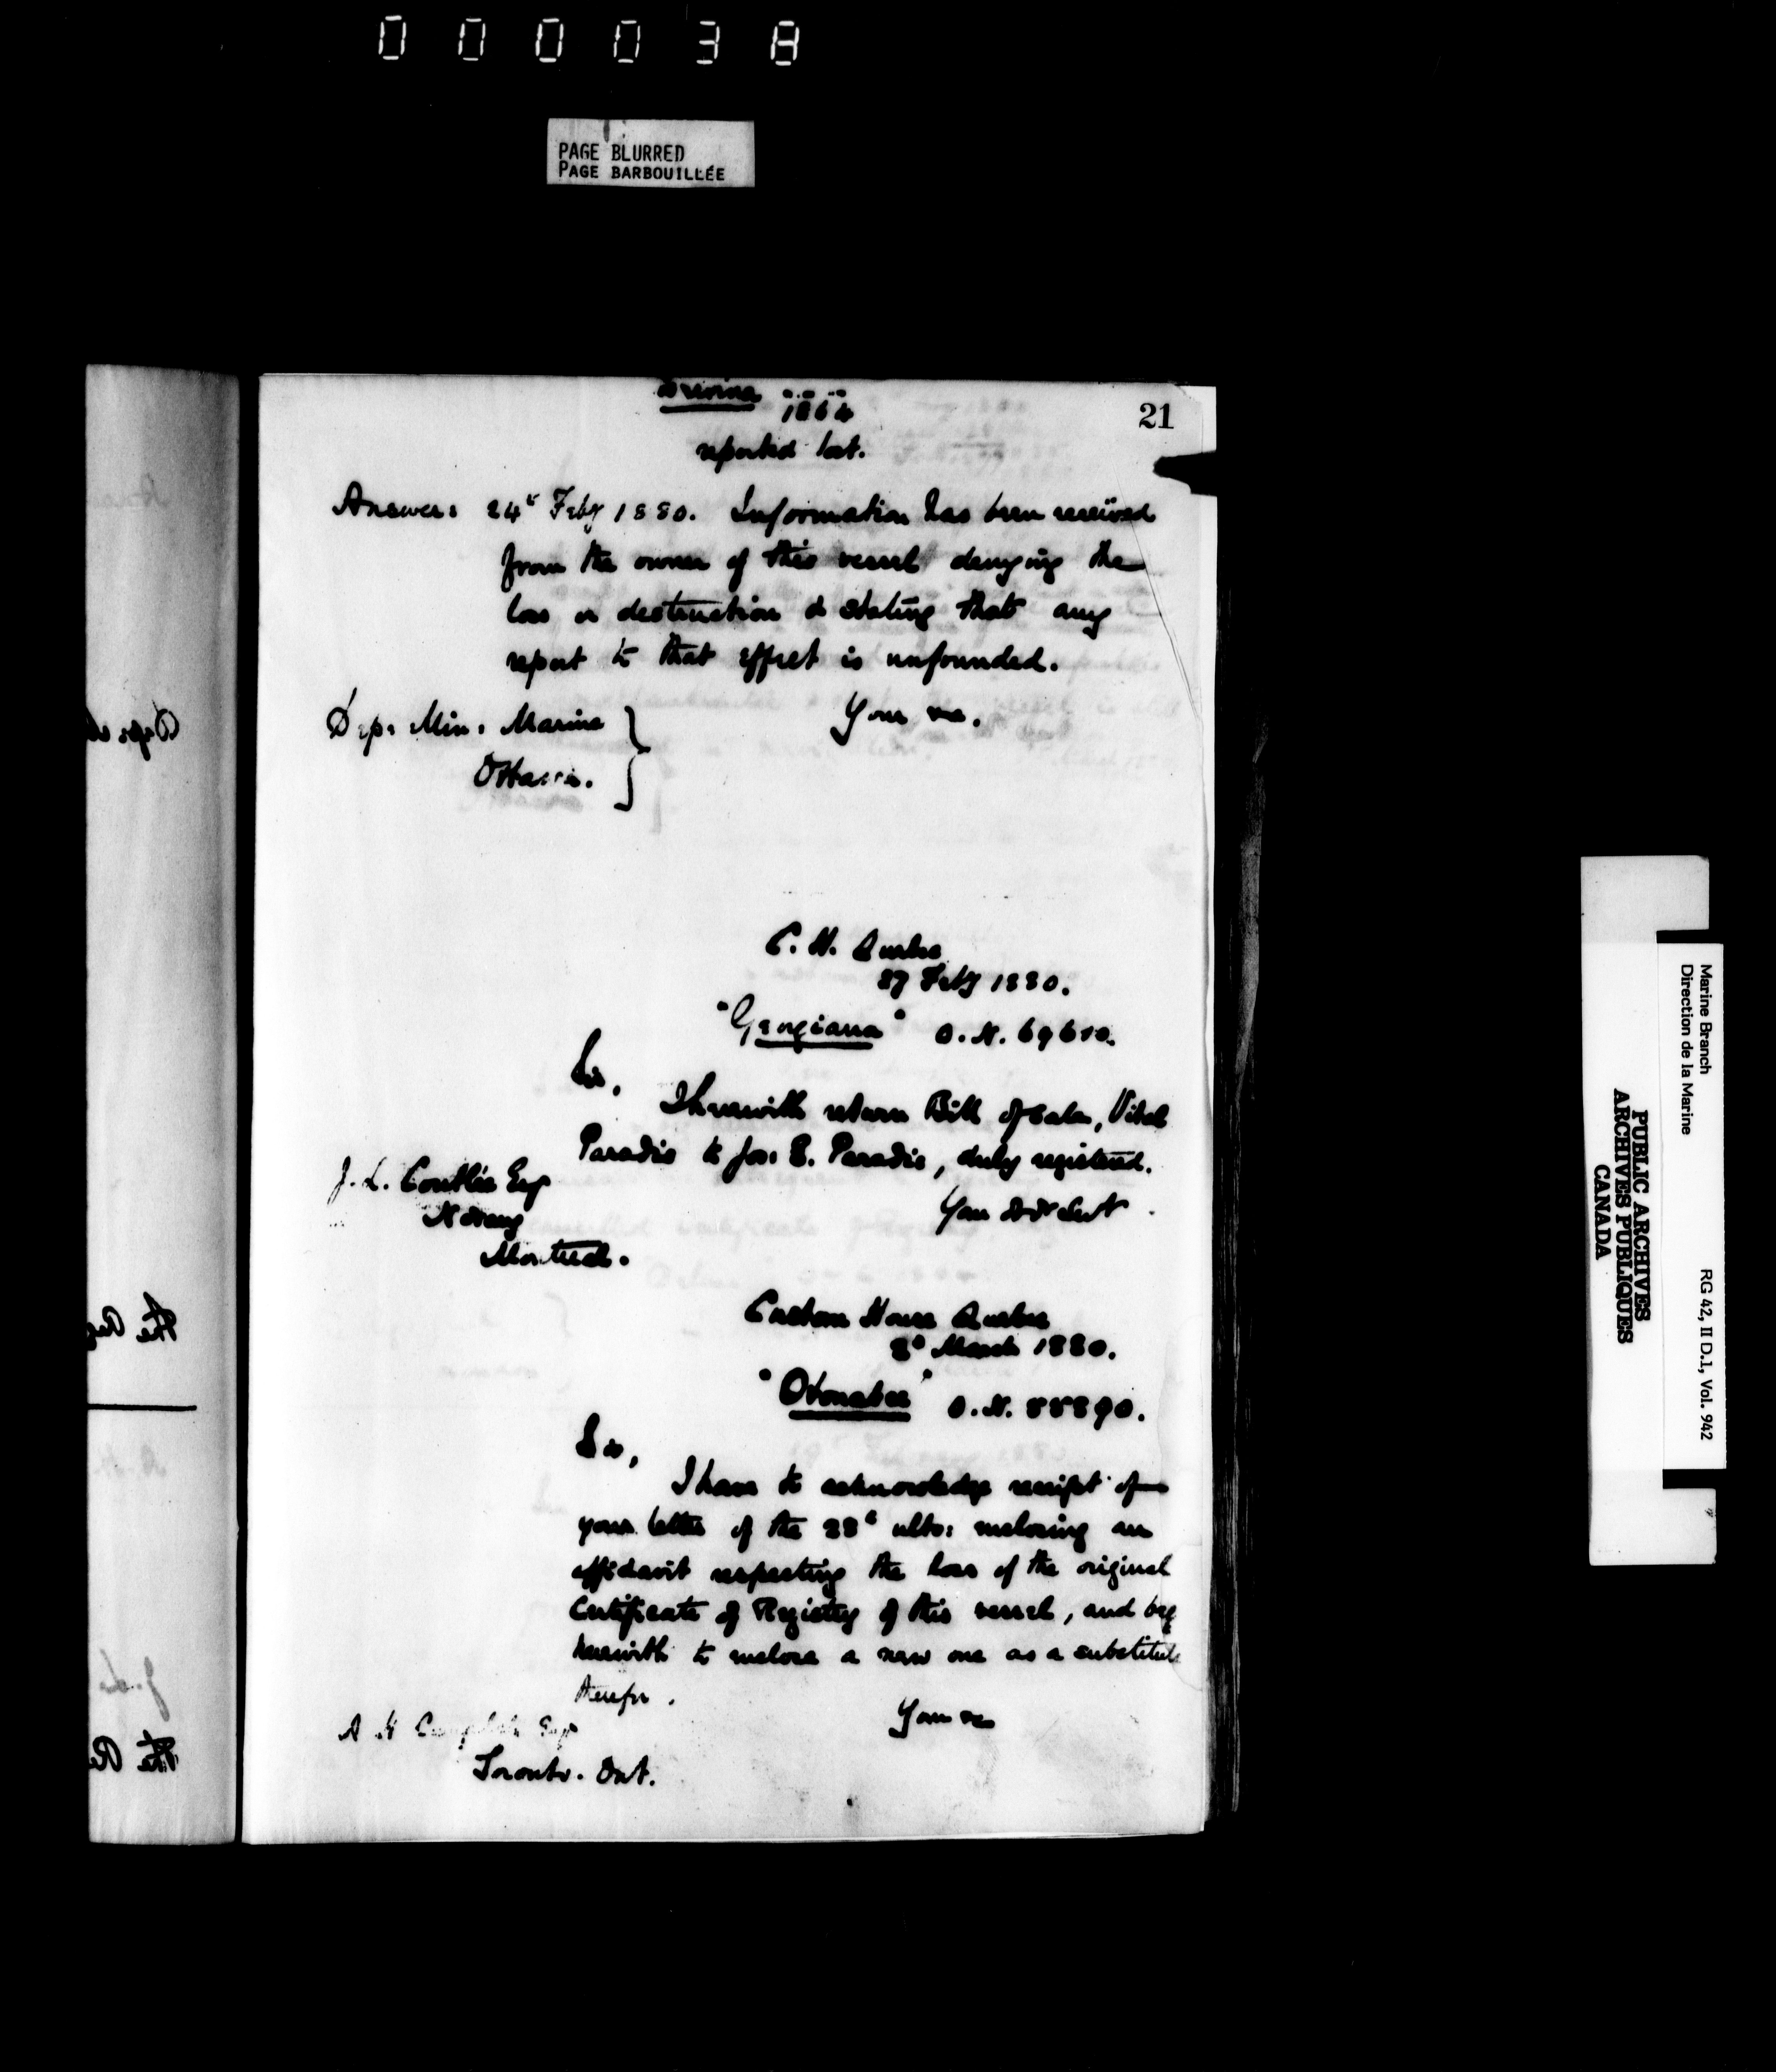 000038
PAGE BLURRED
PAGE BARBOUILLÉE
21
1864
reported lost.
Answer: 24th Feby 1880. Information has been received
from the owner of this vessel denying the
loss or destruction & stating that any
report to that effect is unfounded.
Your
Dep. Min. Marine
Ottawa.
C. H. Quebec
27 Feby 1880.
"Georgiana" O.N. 69610.
Sir,
I herewith return Bill of Sale, Vital
Paradis to Jos: E. Paradis, duly registered.
J. L. Coutlée Esq
Notary
Your Obdt Servt
Montreal.
Custom House Quebec
2d March 1880.
"Otonabee" O.N.
Sir,
I have to acknowledge receipt of
your letter of the 28th ulto: enclosing an
affidavit respecting the loss of the original
Certificate of Registry of this vessel, and beg
herewith to enclose a new one as a substitute
therefor.
Your
A H Campbell Esqr
Toronto. Ont.
Marine Branch
Direction de la Marine
RG 42, II D.1, Vol. 942
PUBLIC ARCHIVES
ARCHIVES PUBLIQUES
CANADA